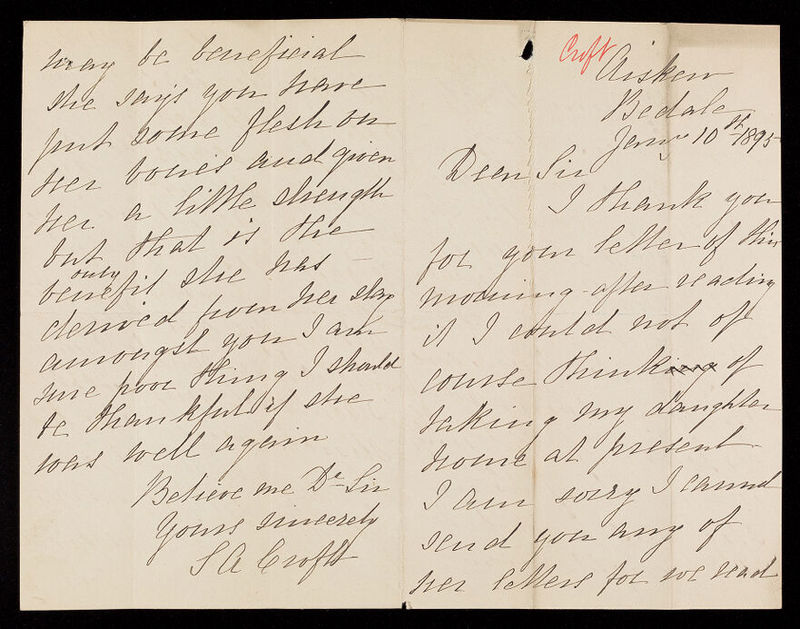 Croft
Aiskew
Bedale
Jany 10st 1895
Dear Sir
I thank you
for your letter of this
morning after reading
it I could not of
course thinking of
taking my daughter
home at present
I am sorry I cannot
send you any of
her letters for we read
may be beneficial
she says you have
put some flesh on
her bones and given
her a little strength
but that is the
only
benefit she has
derived from her stay
amongst you I am
sure poor thing I should
be thankful if she
was well again
Believe me Dr Sir
Yours sincerely
S A Croft